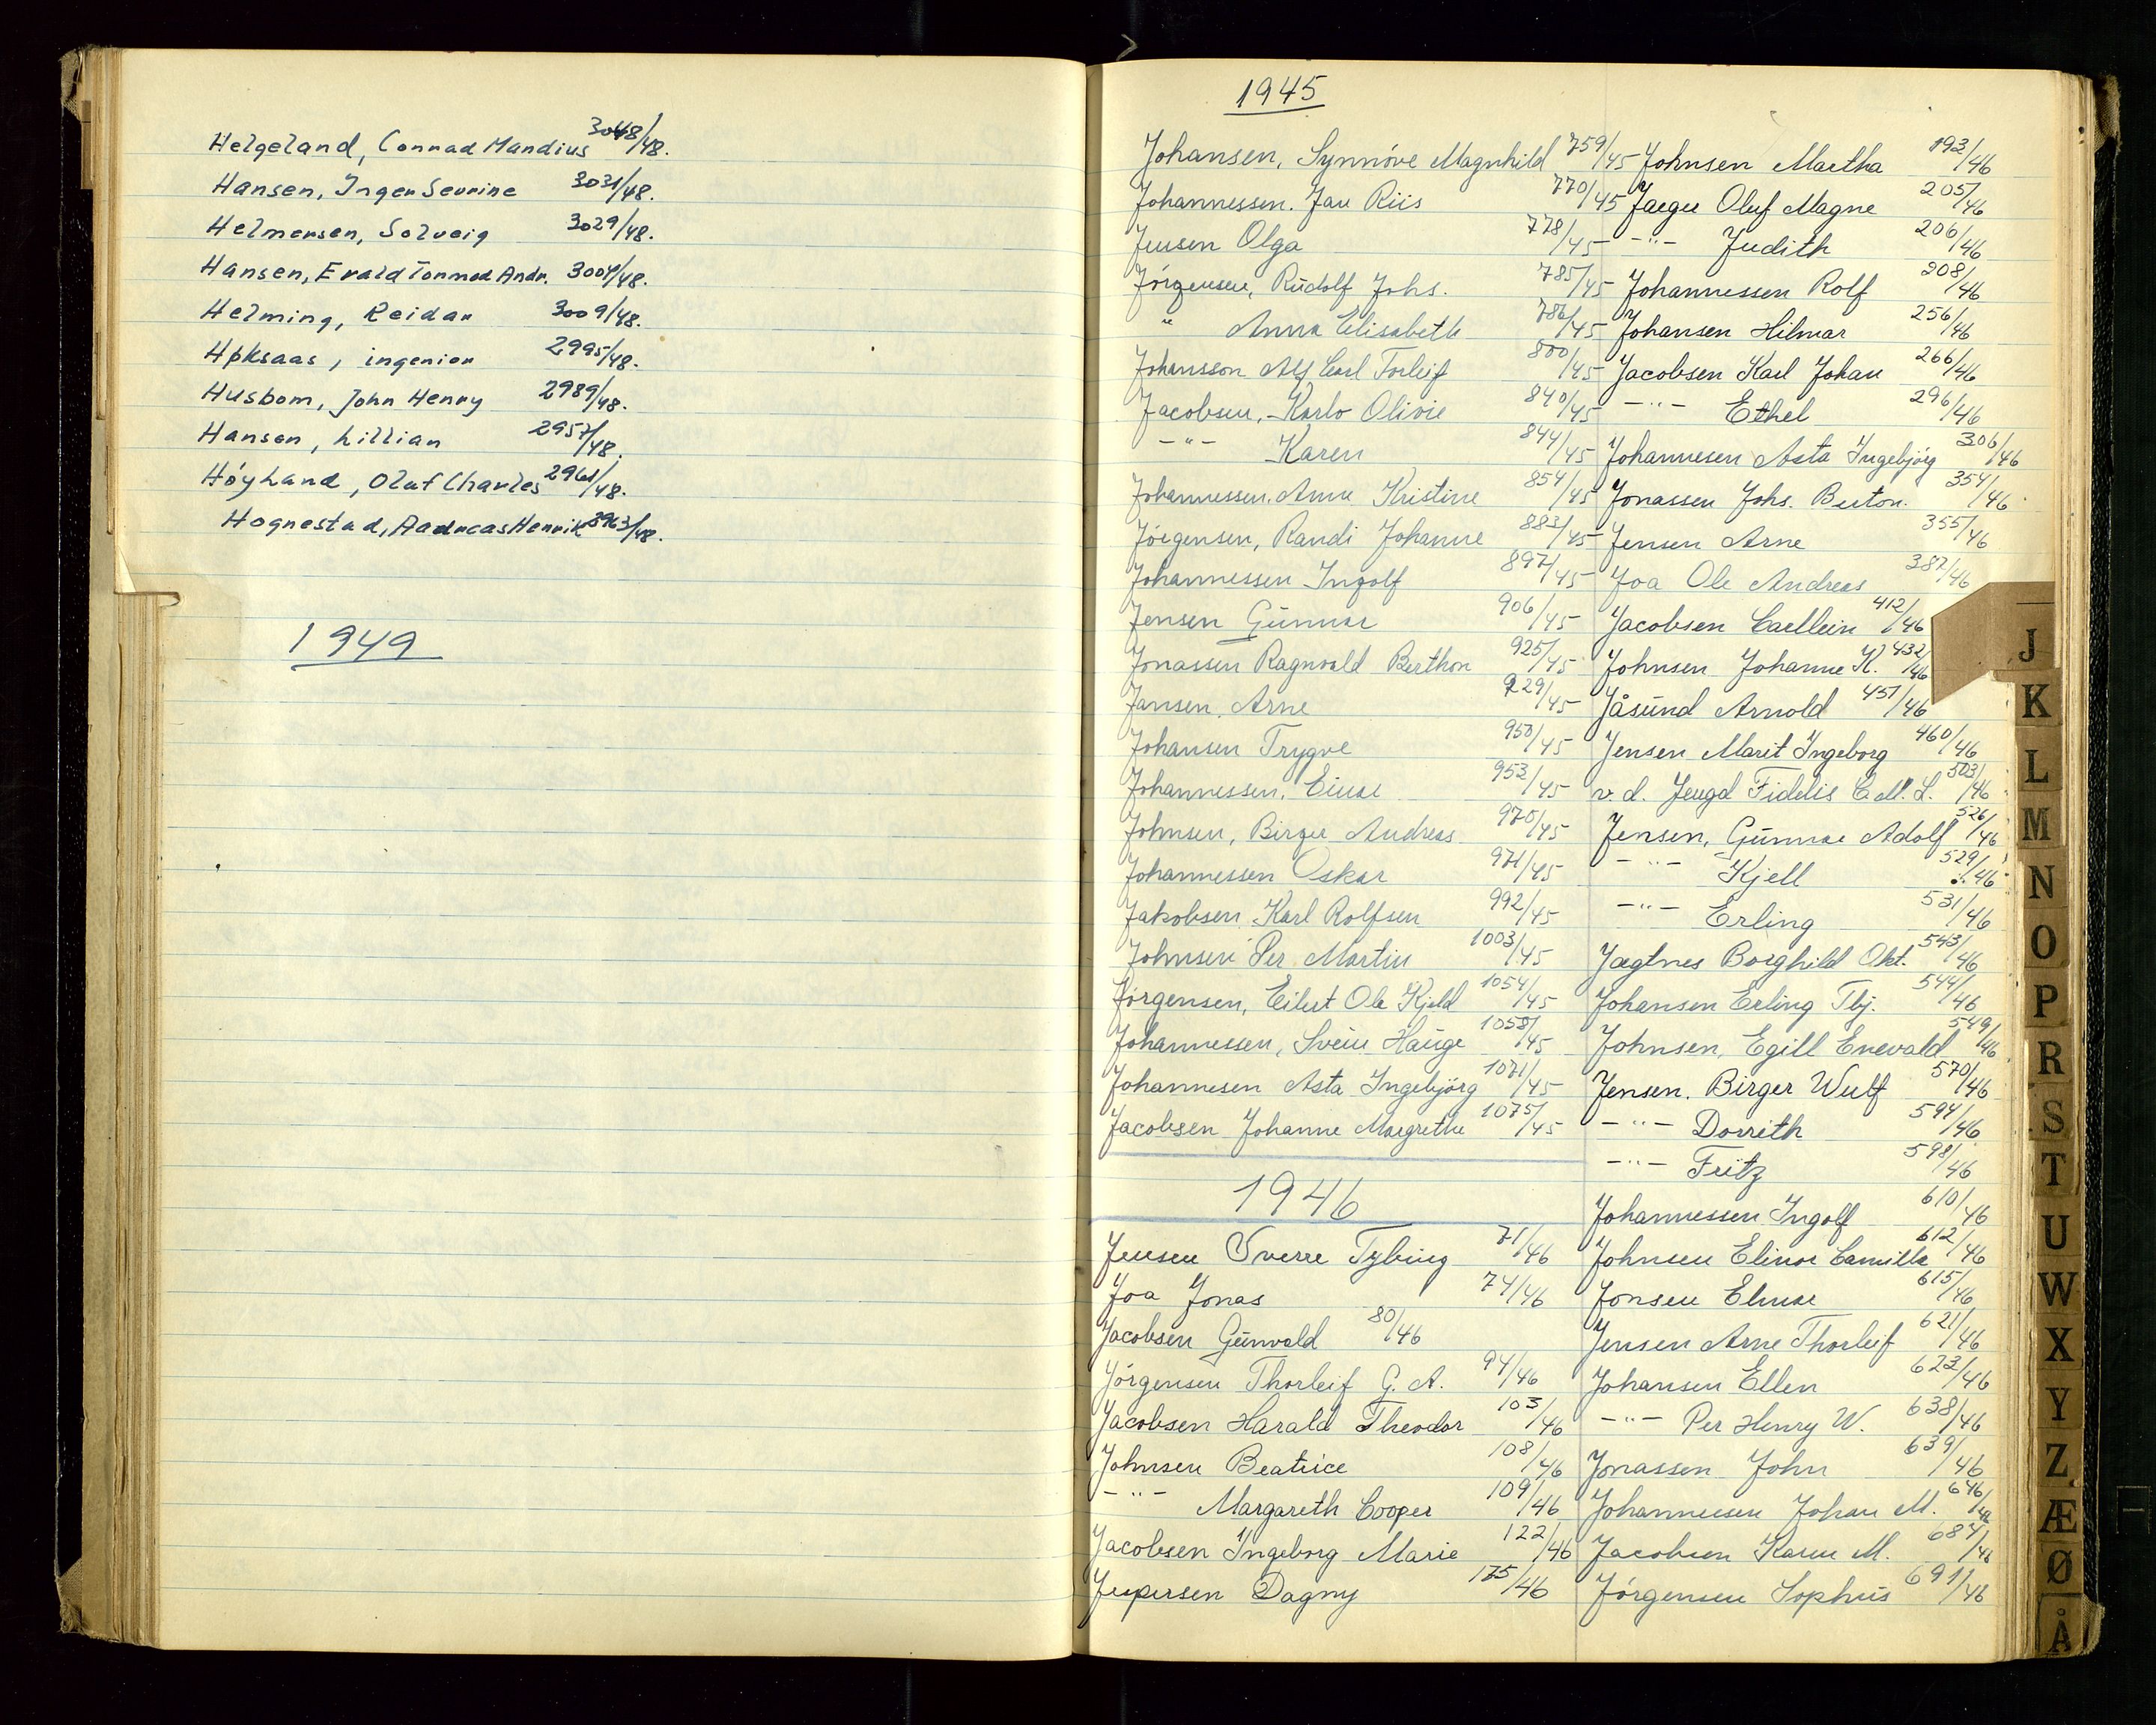 Helgeland, Conrad Mandius 3048/48.
Hansen, Inger Sevrine 3031/48.
Helmersen, Solveig 3029/48.
Hansen, Evald Tormod Andr. 3004/48.
Helming, Reidar 3009/48.
Høksaas, ingeniør 2995/48.
Husbom, John Henry 2989/48.
Hansen, Lillian 2957/48.
Høyland, Olaf Charles 2961/48.
Hognestad, Aadreas Henrik 2963/48.
1949
1945
Johansen, Synnöve Magnhild 759/45
Johannessen. Jan Riis 770/45
Jensen Olga 778/45
Jörgensen, Rudolf Johs. 785/45
" Anna Elisabeth 786/45
Johansson Alf Carl Torleif 800/45
Jacobsen, Karlo Olivie 840/45
-"- Karen 844/45
Johannessen. Anna Kristine 854/45
Jörgensen, Randi Johanne 883/45
Johannessen Ingolf 897/45
Jensen Gunnar 906/45
Jonassen Ragnvald Berthon 925/45
Jansen. Arne 929/45
Johansen Trygve 950/45
Johannessen. Einar 953/45
Johnsen, Birger Andreas 970/45
Johannessen Oskar 971/45
Jakobsen Karl Rolfsen 992/45
Johnsen Per Martin 1003/45
Jörgensen, Eilert Ole Kjeld 1054/45
Johannessen, Svein Hauge 1058/45
Johannesen Asta Ingebjörg 1071/45
Jacobsen Johanne Margrethe 1075/45
1946
Jensen Sverre Tybring 71/46
Joa Jonas 74/46
Jacobsen Gunvald 80/46
Jörgensen Thorleif G. A. 94/46
Jacobsen Harald Theodor 103/46
Johnsen Beatrice 108/46
-"- Margareth Cooper 109/46
Jacobsen Ingeborg Marie 122/46
Jespersen Dagny 175/46
Johnsen Martha 193/46
Jaeger Oluf Magne 205/46
-"- Judith 206/46
Johannessen Rolf 208/46
Johansen Hilmar 256/46
Jacobsen Karl Johan 266/46
-"- Ethel 296/46
Johannesen Asta Ingebjörg 306/46
Jonassen Johs. Berton. 354/46
Jensen Arne 355/46
Joa Ole Andreas 387/46
Jacobsen 412/46
Johnsen Johanne K. 432/46
Jåsund Arnold 457/46
Jensen Marit Ingeborg 460/46
v. d. Jeugd Fidelis C. M. L. 503/46
Jensen, Gunnar Adolf 526/46
-"- Kjell 529/46
-"- Erling 531/46
Jægtnes Borghild Okt. 543/46
Johansen Erling Tbj. 544/46
Johnsen, Egill Enevald 549/46
Jensen. Birger Wulf 570/46
-"- Dorrith 594/46
-"- Fritz 598/46
Johannessen Ingolf 610/46
Johnsen Elinor Camilla 612/46
Jonsen Elmar 615/46
Jensen Arne Thorleif 621/46
Johansen Ellen 623/46
-"- Per Henry W. 638/46
Jonassen John 639/46
Johannessen Johan M. 646/46
Jacobsen Karen M. 684/46
Jörgensen Sophus 691/46
J
K
L
M
N
O
P
R
S
T
U
W
X
Y
Z
Æ
Ø
Å